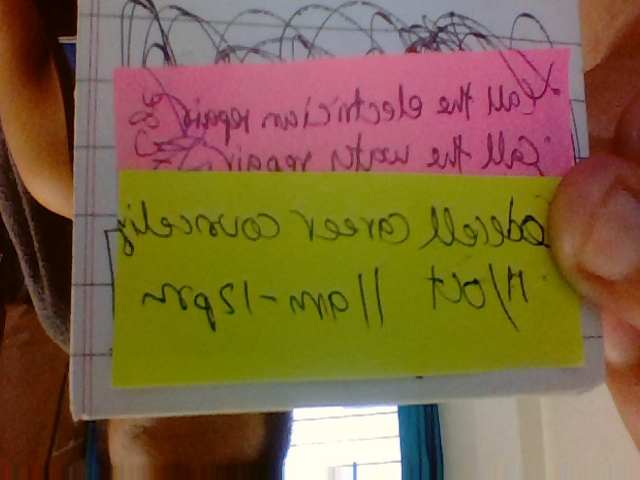 Call the electrician repair
Call the repair
career councelig
17/oct 11am-12pm